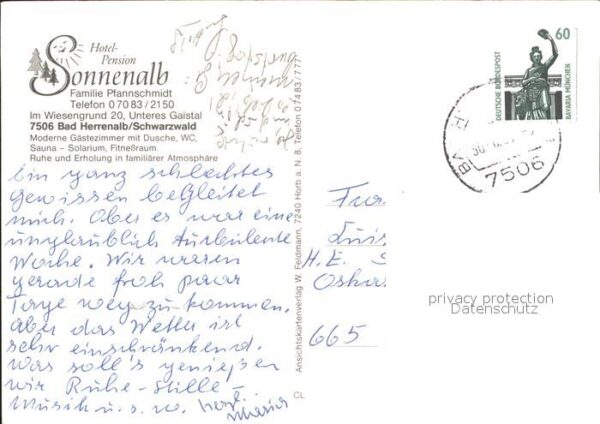 Hotel-
Pension
Sonnenalb
Familie Pfannschmidt
Telefon 0 70 83 / 21 50
Im Wiesengrund 20, Unteres Gaistal
7506 Bad Herrenalb/Schwarzwald
Moderne Gästezimmer mit Dusche, WC,
Sauna – Solarium, Fitneßraum.
Ruhe und Erholung in familiärer Atmosphäre
Ein ganz schlechtes
Gewissen begleitet
mich. Aber es war eine
unglaublich turbulente
Woche. Wir waren
gerade froh paar
Tage weg zu kommen.
Aber das Wetter ist
sehr einschränkend.
Was soll's genießen
wir Ruhe – Stille –
Musik u. s. w. herzl.
Maria
Ansichtskartenverlag W. Feldmann, 7240 Horb a. N. 8, Telefon 0 74 83 / 7 77
CL
60
DEUTSCHE BUNDESPOST
BAVARIA MÜNCHEN
7506
H. E.
665
privacy protection
Datenschutz